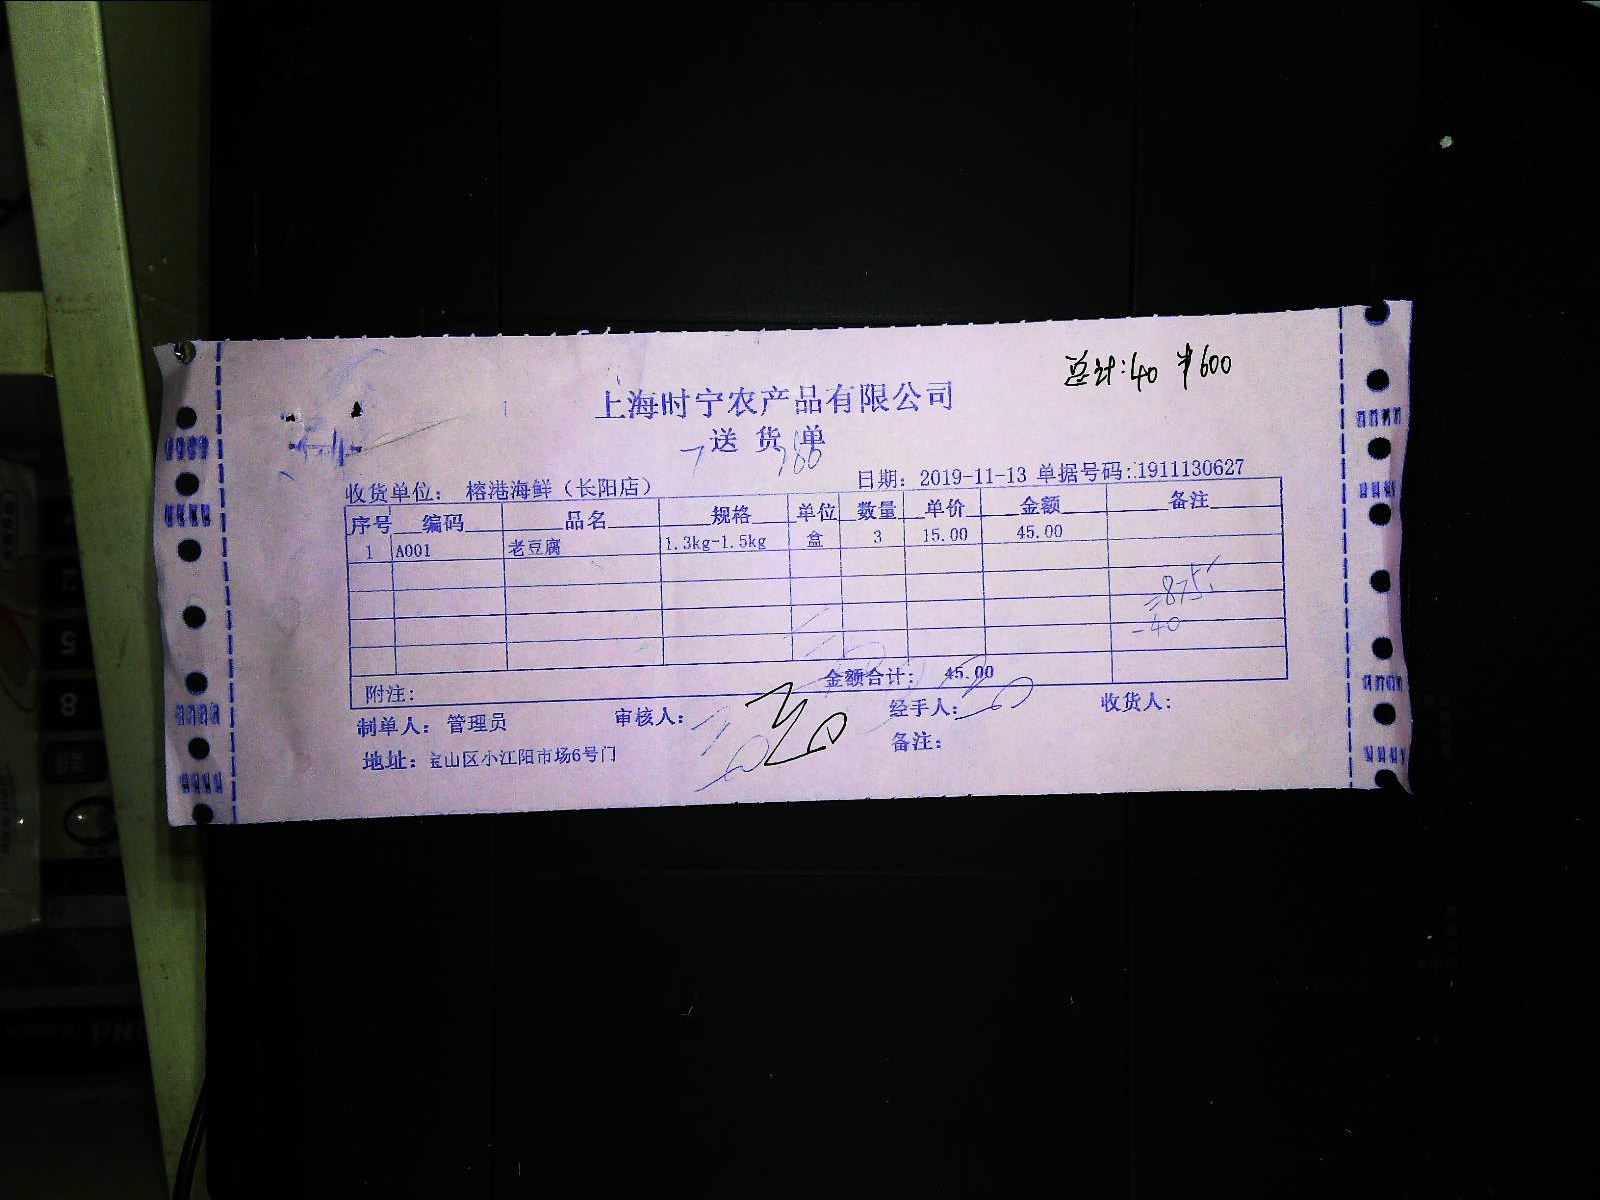 总计:40 ¥600
上海时宁农产品有限公司
送货单
收货单位: 榕港海鲜（长阳店） 日期: 2019-11-13 单据号码:1911130627
序号 编码 品名 规格 单位 数量 单价 金额 备注
1 A001 老豆腐 1.3kg-1.5kg 盒 3 15.00 45.00
=875
-40
附注: 金额合计: 45.00
制单人: 管理员 审核人: 经手人: 收货人:
地址: 宝山区小江阳市场6号门 备注: